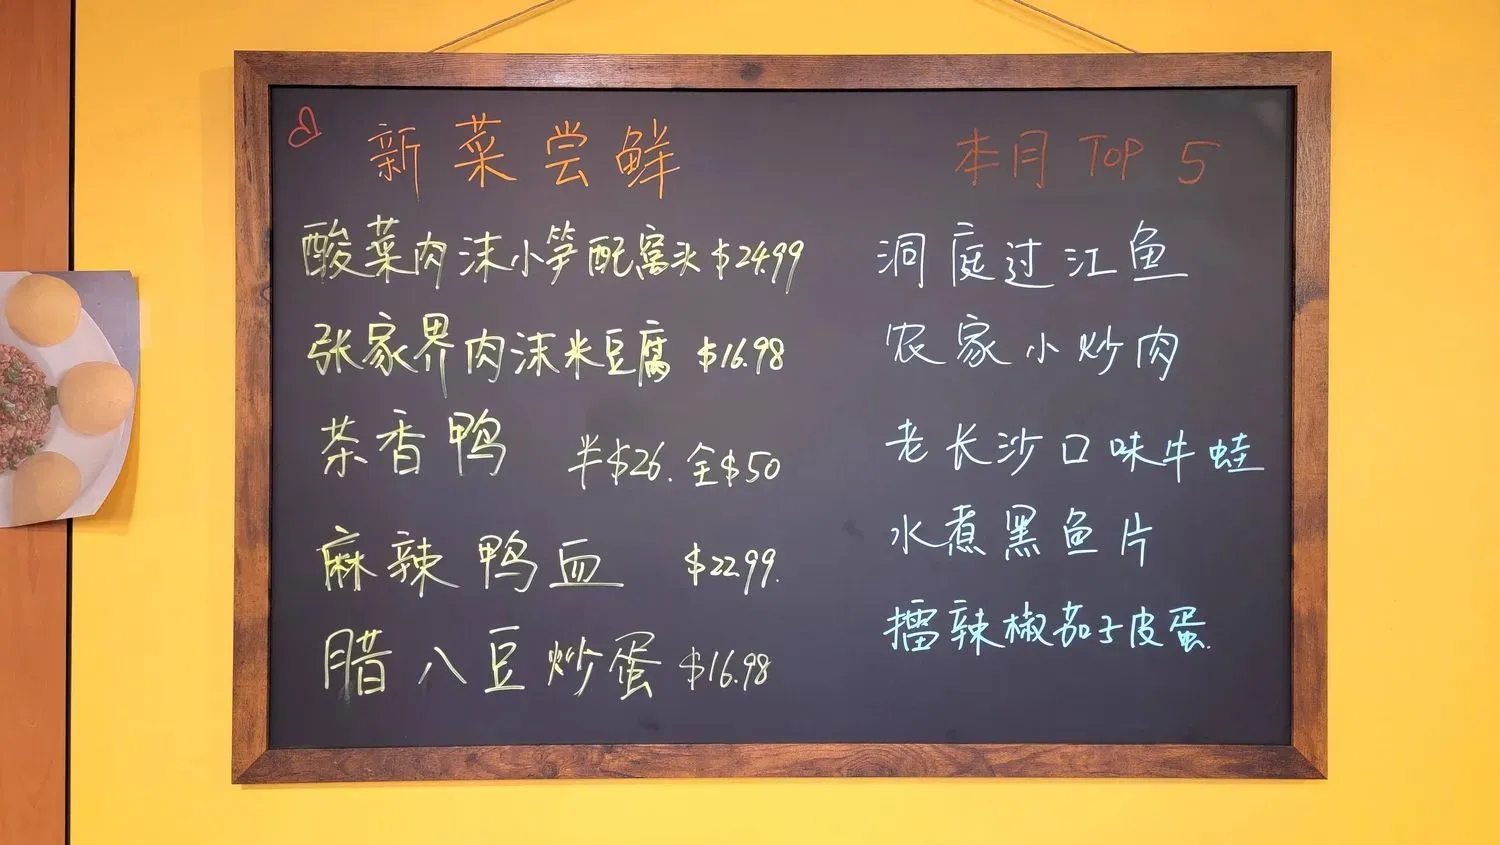 新菜尝鲜
酸菜肉沫小笋配窝头 $24.99
张家界肉沫米豆腐 $16.98
茶香鸭 半$26. 全$50
麻辣鸭血 $22.99.
腊八豆炒蛋 $16.98
本月 TOP 5
洞庭过江鱼
农家小炒肉
老长沙口味牛蛙
水煮黑鱼片
擂辣椒茄子皮蛋.